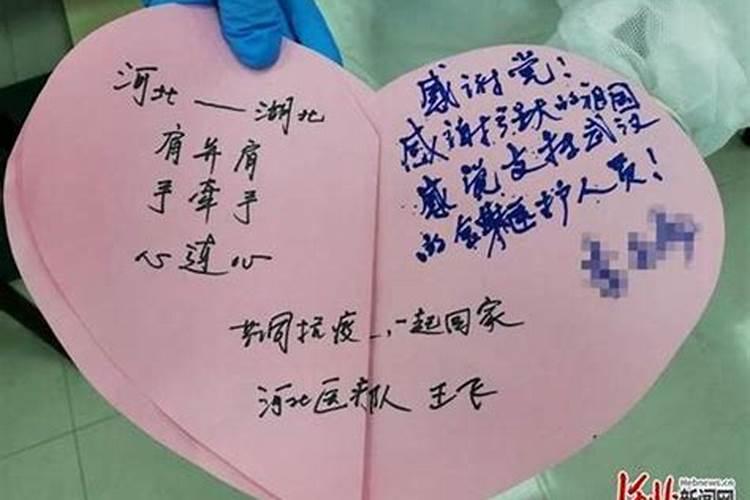 河北——湖北
肩并肩
手牵手
心连心
共同抗疫,一起回家
河北医疗队 王飞
感谢党!
感谢强大的祖国
感谢支持武汉
的全体医护人员!
Hebnews.cn
河北新闻网